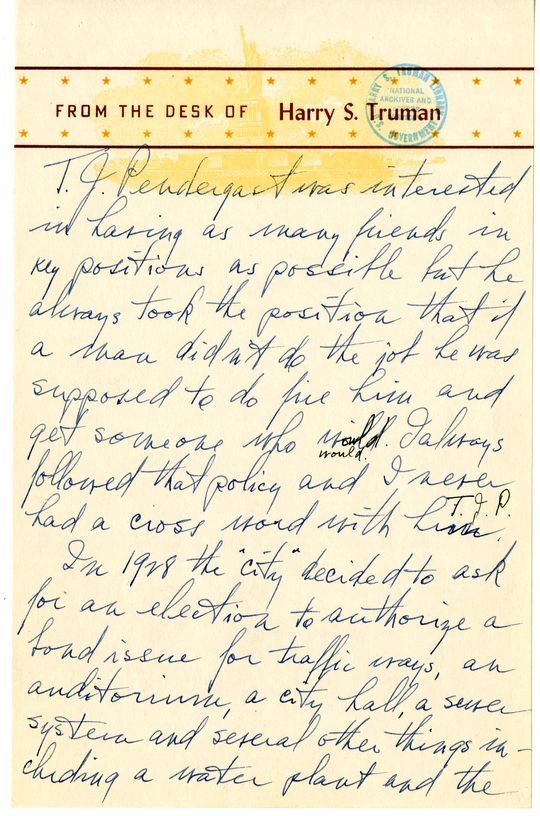 FROM THE DESK OF Harry S. Truman
HARRY S. TRUMAN LIBRARY
NATIONAL
ARCHIVES AND
U.S. GOVERNMENT
T. J. Pendergast was interested
in having as many friends in
key positions as possible but he
always took the position that if
a man didn't do the job he was
supposed to do fire him and
get someone who would. I always
would.
followed that policy and I never
T. J. P.
had a cross word with him.
In 1928 the "city" decided to ask
for an election to authorize a
bond issue for traffic ways, an
auditorium, a city hall, a sewer
system and several other things in-
cluding a water plant and the